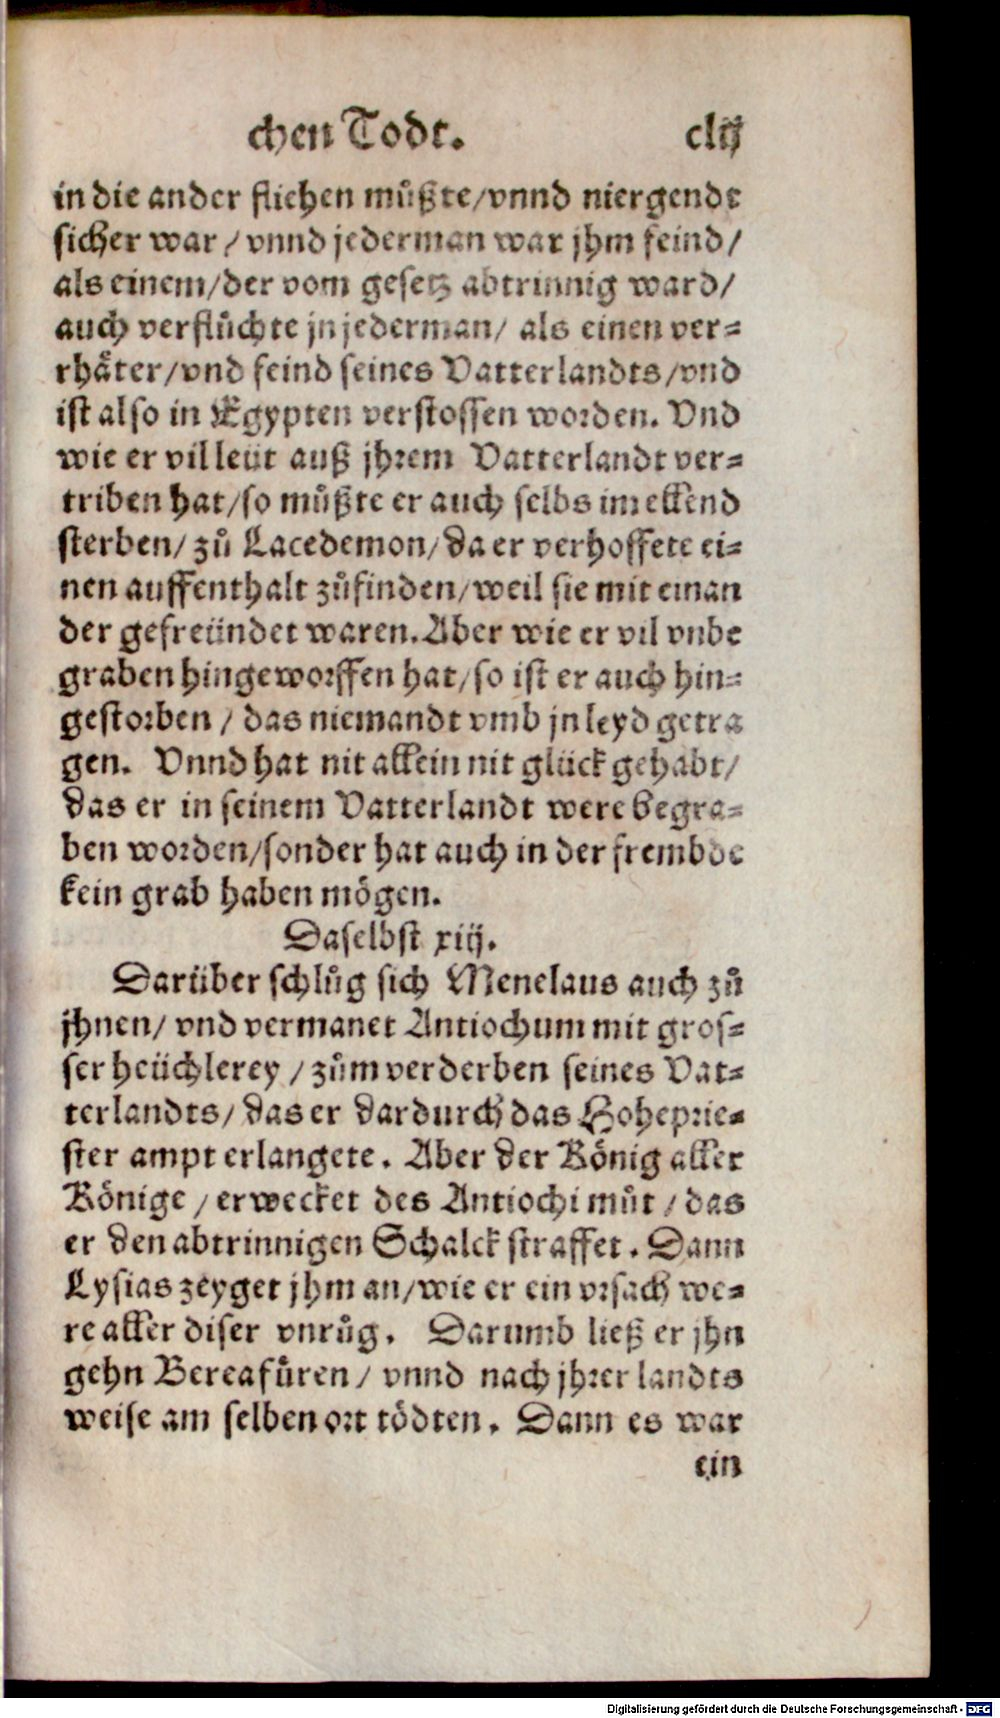 chen Todt. clij
in die ander fliehen můßte/vnnd niergendt
sicher war/ vnnd jederman war jhm feind/
als einem/der vom gesetz abtrinnig ward/
auch verflůchte jn jederman/ als einen ver-
rhäter/vnd feind seines Vatterlandts/vnd
ist also in Egypten verstossen worden. Vnd
wie er vil leüt auß jhrem Vatterlandt ver-
triben hat/so můßte er auch selbs im ellend
sterben/ zů Lacedemon/da er verhoffete ei-
nen auffenthalt zůfinden/weil sie mit einan
der gefreündet waren. Aber wie er vil vnbe
graben hingeworffen hat/so ist er auch hin-
gestorben/ das niemandt vmb jn leyd getra
gen. Vnnd hat nit allein nit glück gehabt/
das er in seinem Vatterlandt were begra-
ben worden/sonder hat auch in der frembde
kein grab haben mögen.
Daselbst xiij.
Darüber schlůg sich Menelaus auch zů
jhnen/ vnd vermanet Antiochum mit gros-
ser heüchlerey/ zům verderben seines Vat-
terlandts/ das er dardurch das Hoheprie-
ster ampt erlangete. Aber der König aller
Könige/ erwecket des Antiochi můt/ das
er den abtrinnigen Schalck straffet. Dann
Lysias zeyget jhm an/wie er ein vrsach we-
re aller diser vnrůg. Darumb ließ er jhn
gehn Berea fůren/ vnnd nach jhrer landts
weise am selben ort tödten. Dann es war
ein
Digitalisierung gefördert durch die Deutsche Forschungsgemeinschaft - DFG